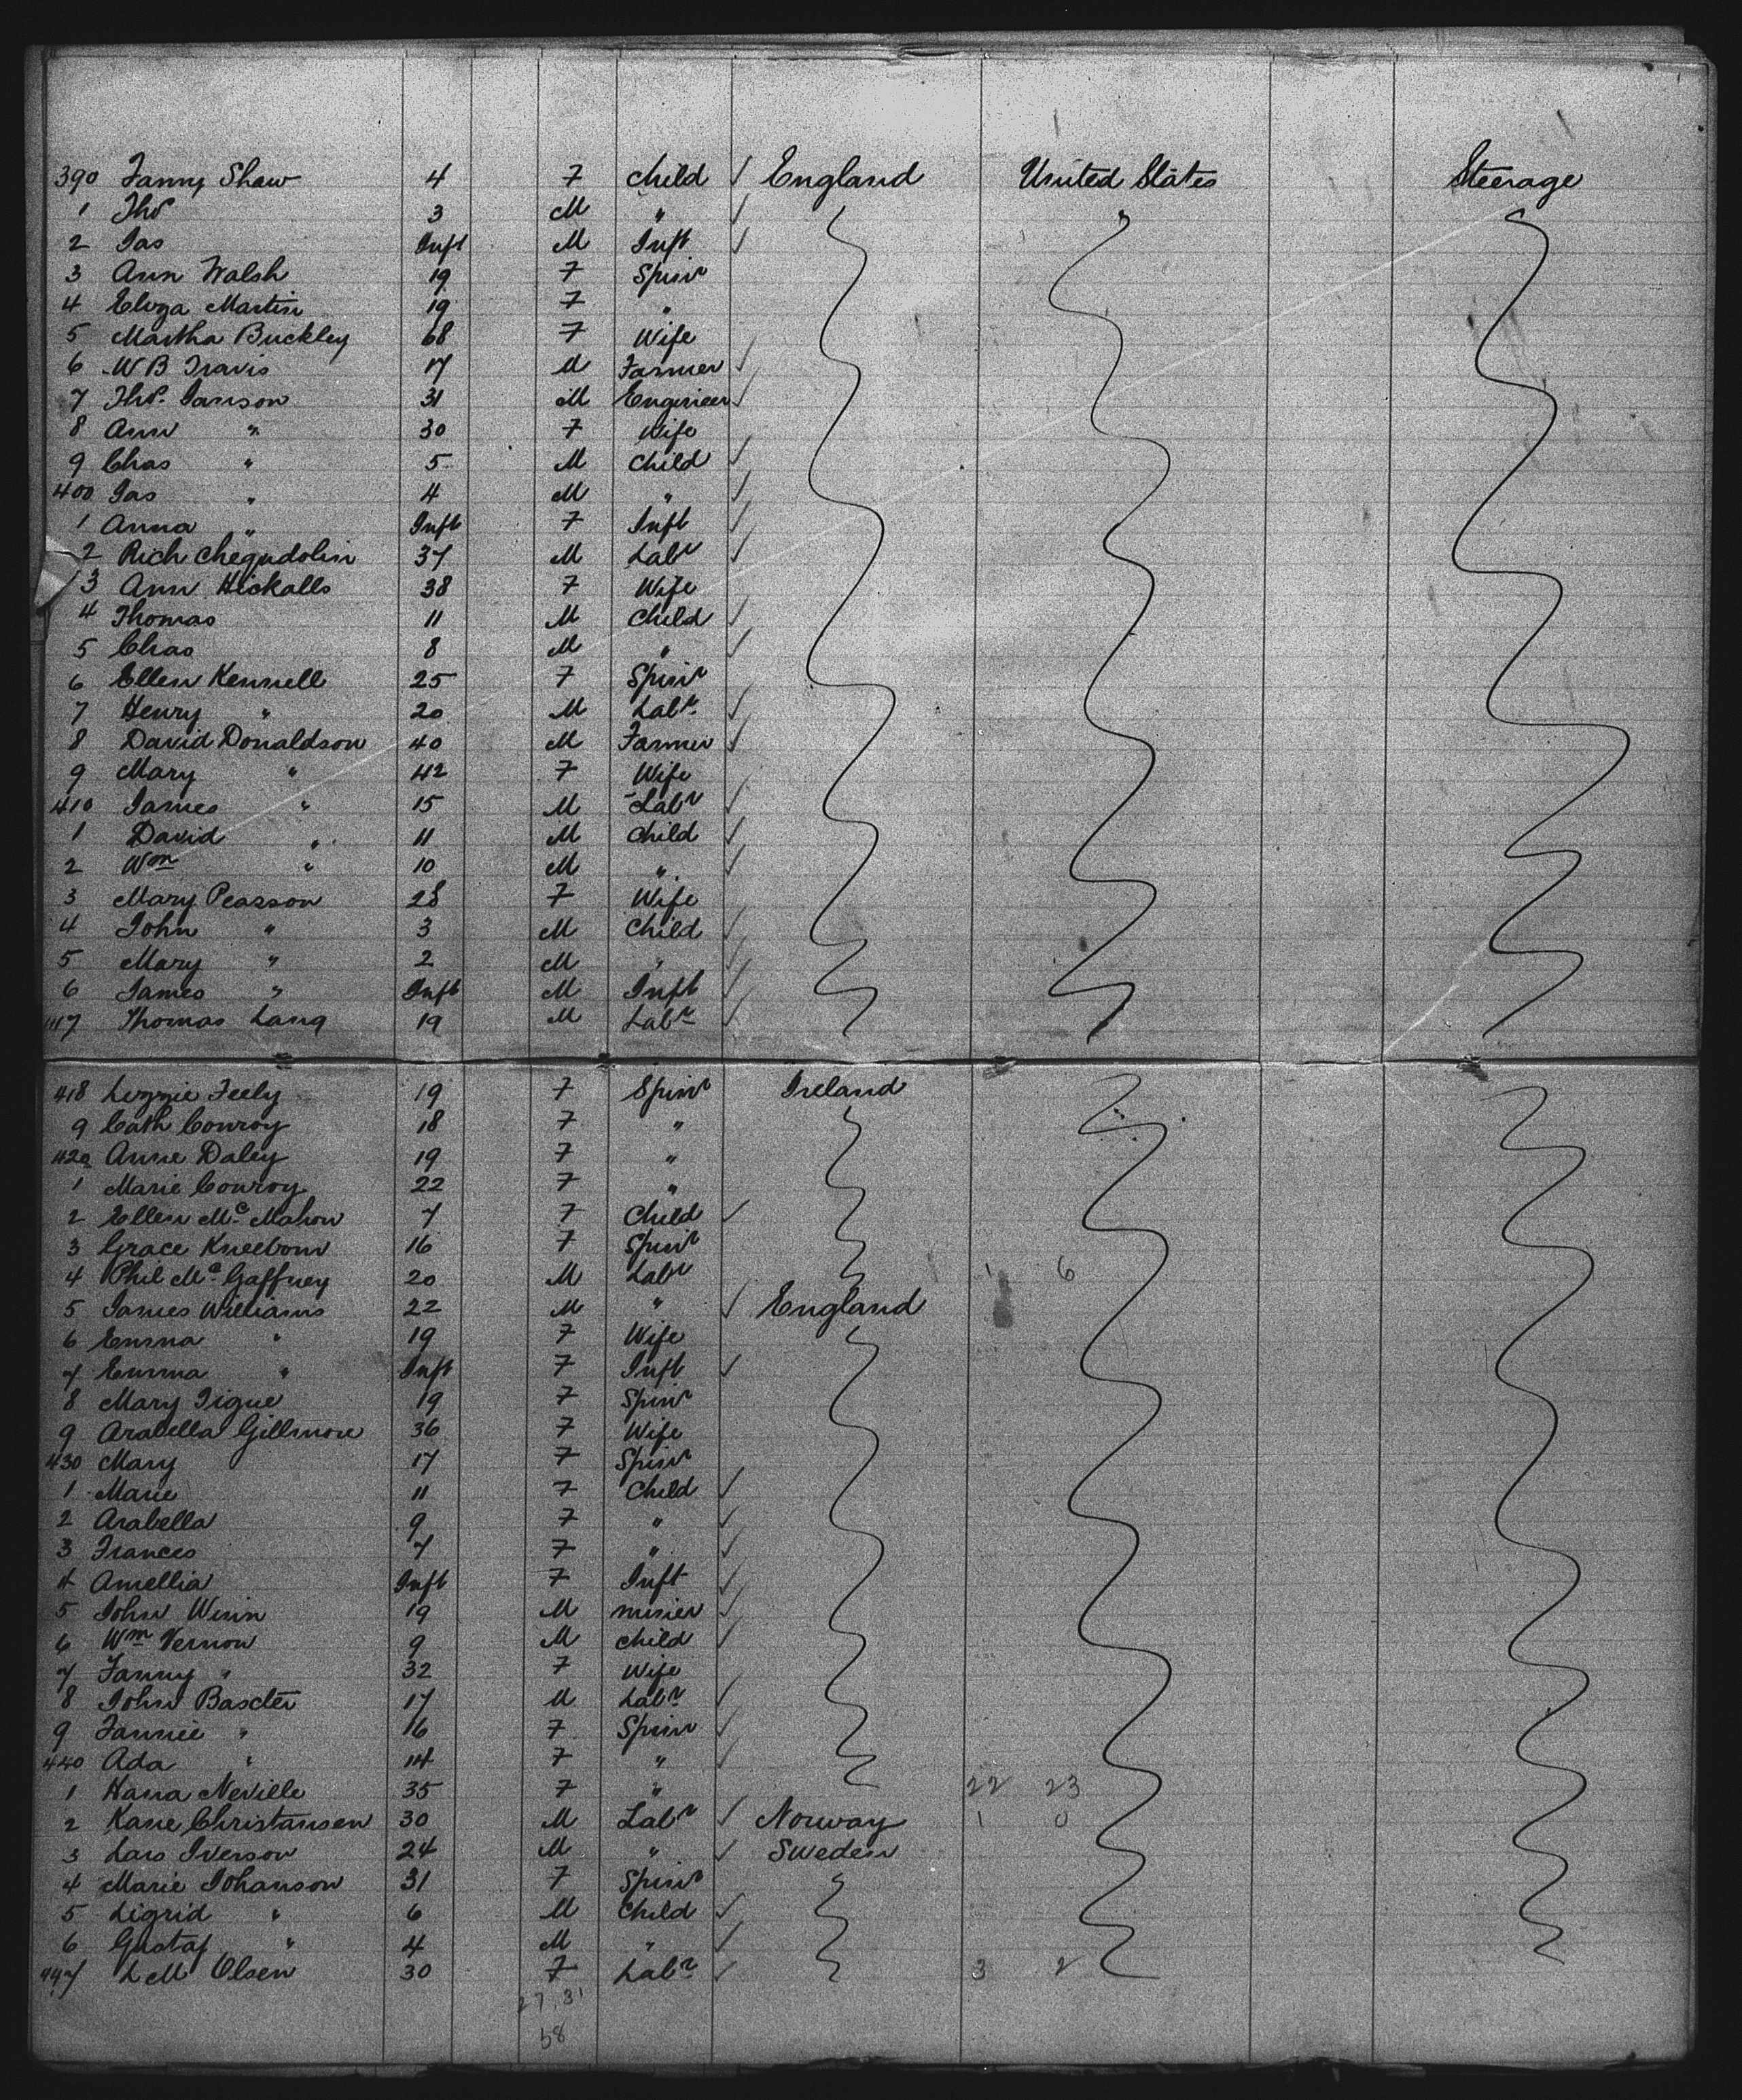 390 Fanny Shaw 4 F Child ✓ England United States Steerage
1 Thos 3 M " ✓
2 Jas Inft M Inft ✓
3 Ann Walsh 19 F Spinr
4 Eliza Martin 19 F "
5 Martha Buckley 68 F Wife
6 W B Travis 17 M Farmer ✓
7 Thos. Janson 31 M Engineer ✓
8 Ann " 30 F Wife
9 Chas " 5 M Child ✓
400 Jas " 4 M " ✓
1 Anna " Inft F Inft ✓
2 Rich Chegudolin 37 M Labr ✓
3 Ann Hickalls 38 F Wife
4 Thomas 11 M Child ✓
5 Chas 8 M " ✓
6 Ellen Kennell 25 F Spinr
7 Henry " 20 M Labr ✓
8 David Donaldson 40 M Farmer ✓
9 Mary " 42 F Wife
410 James " 15 M Labr ✓
1 David " 11 M Child ✓
2 Wm " 10 M " ✓
3 Mary Pearson 28 F Wife
4 John " 3 M Child ✓
5 Mary " 2 M " ✓
6 James " Inft M Inft ✓
417 Thomas Lang 19 M Labr ✓
418 Lizzie Feely 19 F Spinr Ireland
9 Cath Conroy 18 F "
420 Anne Daley 19 F "
1 Marie Conroy 22 F "
2 Ellen Mc Mahon 7 F Child ✓
3 Grace Kneebom 16 F Spinr
4 Phil Mc Gaffney 20 M Labr 1 6
5 James Williams 22 M " ✓ England
6 Emma " 19 F Wife
7 Emma " Inft F Inft ✓
8 Mary Tigue 19 F Spinr
9 Arabella Gillmore 36 F Wife
430 Mary 17 F Spinr
1 Marie 11 F Child ✓
2 Arabella 9 F " ✓
3 Frances 7 F " ✓
4 Amellia Inft F Inft ✓
5 John Winn 19 M miner ✓
6 Wm Vernon 9 M child ✓
7 Fanny " 32 F Wife
8 John Baxter 17 M Labr ✓
9 Fannie " 16 F Spinr ✓
440 Ada " 14 F " ✓
1 Hana Neville 35 F " 22 23
2 Kane Christansen 30 M Labr ✓ Norway 1 0
3 Lars Iverson 24 M " ✓ Sweden
4 Marie Johanson 31 F Spinr
5 Sigrid " 6 M Child ✓
6 Gustaf " 4 M " ✓
447 L M Olsen 30 F Labr ✓ 3 2
27.31
58